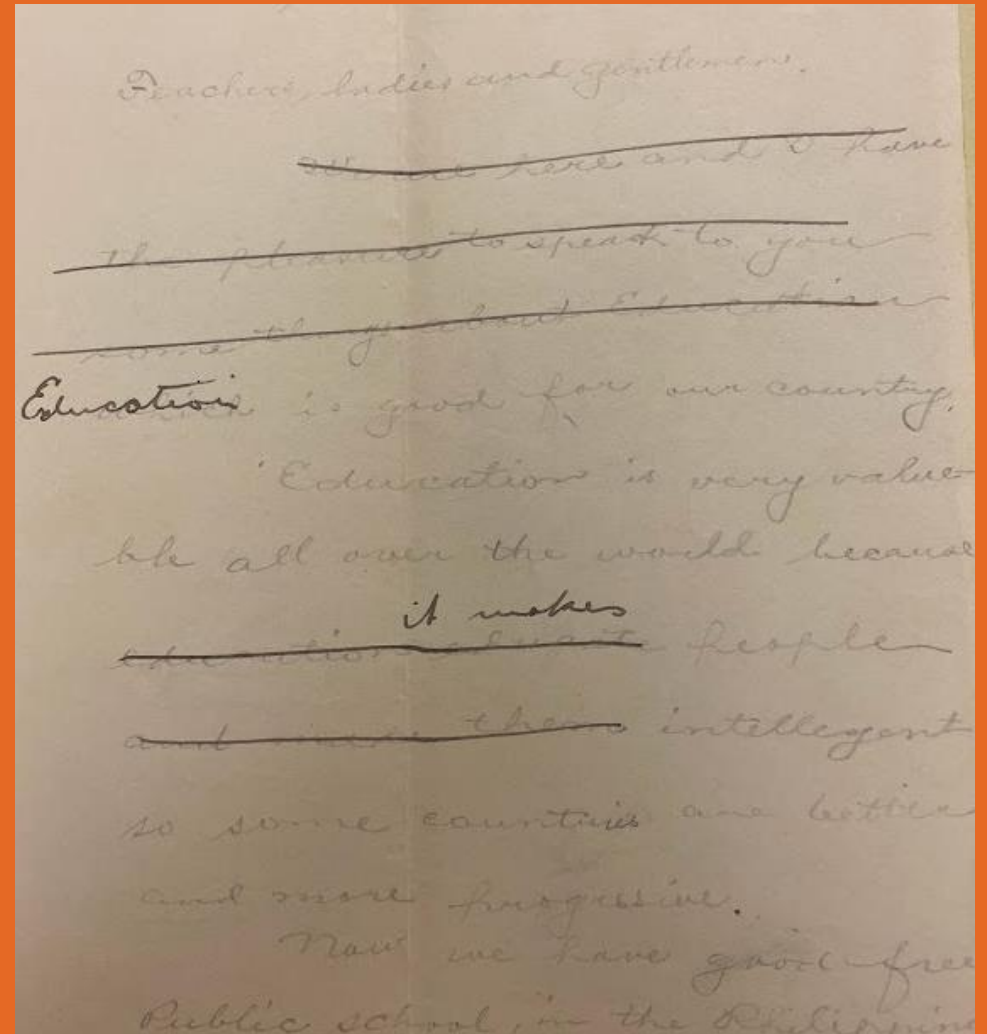 Teachers, ladies and gentlemen.
We are here and I have
the pleasure to speak to you
some things about Education
Education is good for our country.
Education is very value
ble all over the world because
it makes
education educate people
and make them intellegent
so some countries are better
and more progressive.
Now we have good free
Public school, in the Philippine